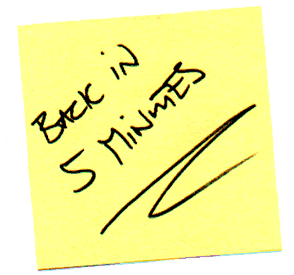 BACK IN
5 MINUTES